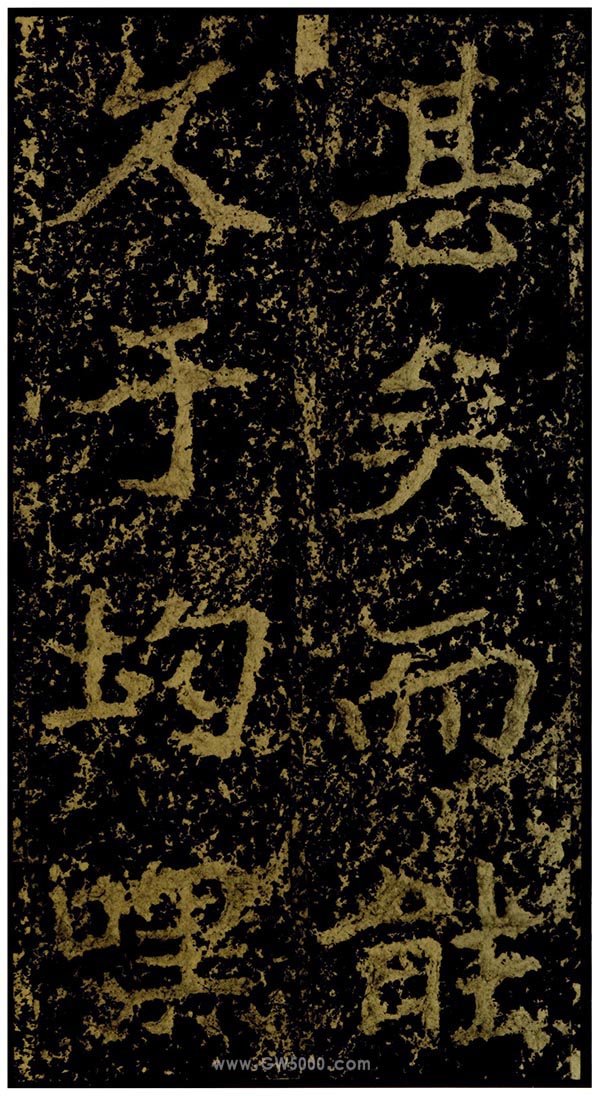 甚矣而能
久乎均嘿
www.GW5000.com